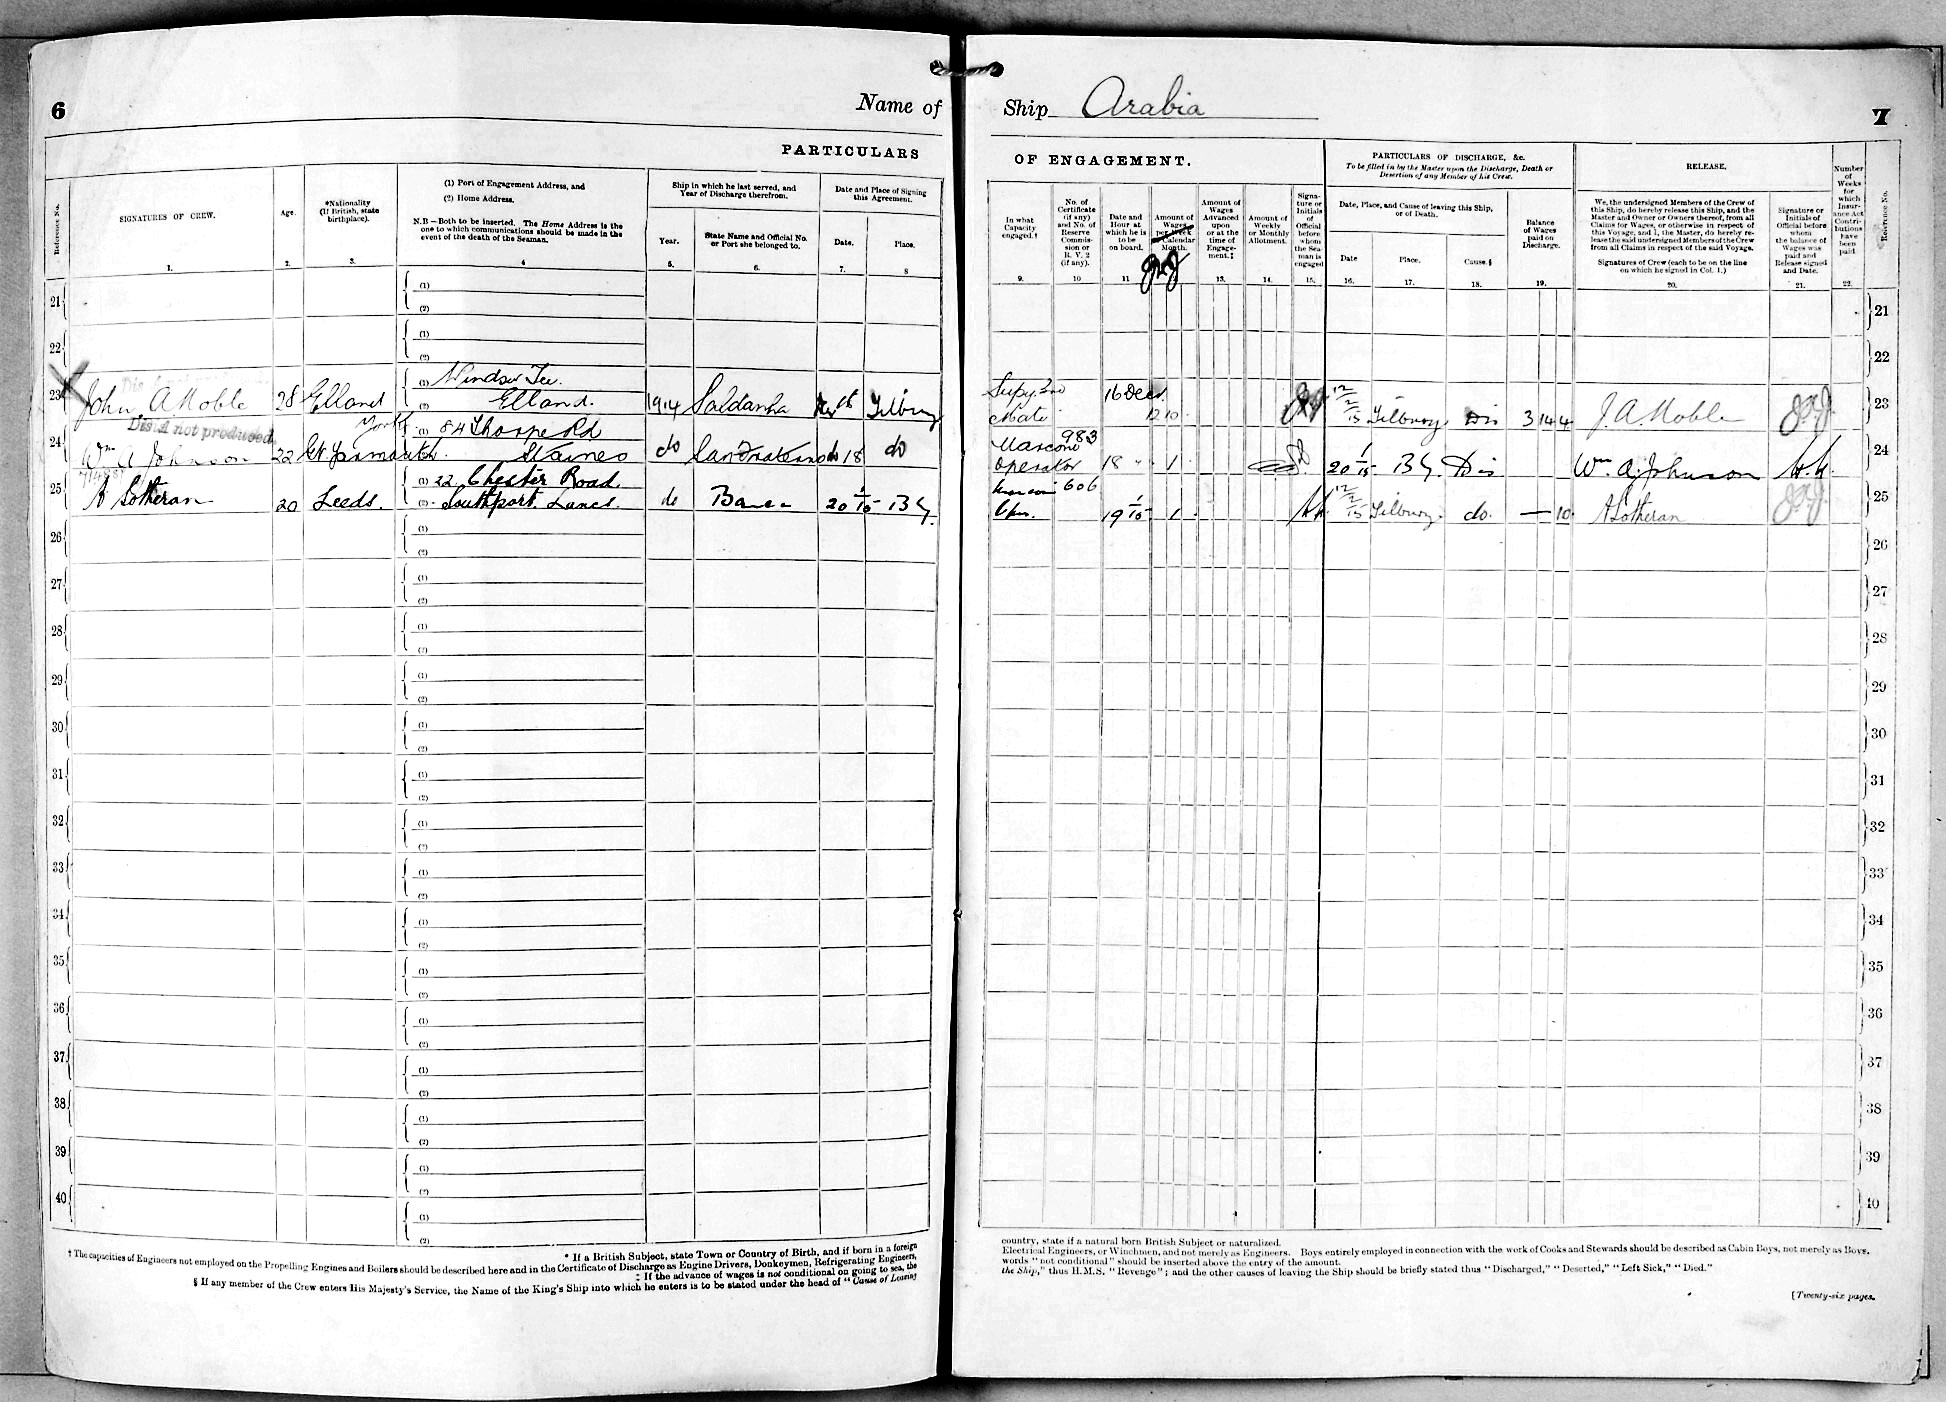 6
Name of
PARTICULARS
Reference No.
SIGNATURES OF CREW.
1.
Age.
2.
*Nationality
(If British, state
birthplace).
3.
(1) Port of Engagement Address, and
(2) Home Address.
N.B—Both to be inserted. The Home Address is the
one to which communications should be made in the
event of the death of the Seaman.
4
Ship in which he last served, and
Year of Discharge therefrom.
Year.
5.
State Name and Official No.
or Port she belonged to.
6.
Date and Place of Signing
this Agreement.
Date.
7.
Place.
8
21
(1)
(2)
22
(1)
(2)
23
John A Noble
28
Elland
Yorks
(1) Windsor Ter.
(2) Elland.
1914
Saldanha
Tilbury
Dis A not produced
24
Wm A Johnson
22
Gt Yarmouth
(1) 84 Thorpe Rd
Staines
do
do 18
do
25
A Sotheran
20
Leeds.
(1) 22 Chester Road
(2) Southport. Lancs.
do
20 1/15
BY.
26
(1)
(2)
27
(1)
(2)
28
(1)
(2)
29
(1)
(2)
30
(1)
(2)
31
(1)
(2)
32
(1)
(2)
33
(1)
(2)
34
(1)
(2)
35
(1)
(2)
36
(1)
(2)
37
(1)
(2)
38
(1)
(2)
39
(1)
(2)
40
(1)
(2)
* If a British Subject, state Town or Country of Birth, and if born in a foreign
† The capacities of Engineers not employed on the Propelling Engines and Boilers should be described here and in the Certificate of Discharge as Engine Drivers, Donkeymen, Refrigerating Engineers,
‡ If the advance of wages is not conditional on going to sea, the
§ If any member of the Crew enters His Majesty's Service, the Name of the King's Ship into which he enters is to be stated under the head of "Cause of Leaving
Ship Arabia
7
OF ENGAGEMENT.
In what
Capacity
engaged.†
9.
No. of
Certificate
(if any)
and No. of
Reserve
Commis-
sion or
R. V. 2
(if any).
10
Date and
Hour at
which he is
to be
on board.
11
Amount of
Wages
per Week
Calendar
Month.
Amount of
Wages
Advanced
upon
or at the
time of
Engage-
ment.‡
13.
Amount of
Weekly
or Monthly
Allotment.
14.
Signa-
ture or
Initials
of
Official
before
whom
the Sea-
man is
engaged
15.
PARTICULARS OF DISCHARGE, &c.
To be filled in by the Master upon the Discharge, Death or
Desertion of any Member of his Crew.
Date, Place, and Cause of leaving this Ship,
or of Death.
Date
16.
Place.
17.
Cause.§
18.
Balance
of Wages
paid on
Discharge.
19.
RELEASE.
We, the undersigned Members of the Crew of
this Ship, do hereby release this Ship, and the
Master and Owner or Owners thereof, from all
Claims for Wages, or otherwise in respect of
this Voyage, and I, the Master, do hereby re-
lease the said undersigned Members of the Crew
from all Claims in respect of the said Voyage.
Signatures of Crew (each to be on the line
on which he signed in Col. 1.)
20.
Signature or
Initials of
Official before
whom
the balance of
Wages was
paid and
Release signed
and Date.
21.
Number
of
Weeks
for
which
Insur-
ance Act
Contri-
butions
have
been
paid.
22.
Reference No.
21
22
Supy. 2nd
Mate
16 Dec.
12 10
12/2/15
Tilbury.
Dis
3 14 4
J. A. Noble
23
Marconi
Operator
983
18 "
1
20 1/15
BY.
Dis
Wm A. Johnson
24
606
19 1/15
1
12/2/15
Tilbury.
do.
— 10
A Sotheran
25
26
27
28
29
30
31
32
33
34
35
36
37
38
39
40
country, state if a natural born British Subject or naturalized.
Electrical Engineers, or Winchmen, and not merely as Engineers. Boys entirely employed in connection with the work of Cooks and Stewards should be described as Cabin Boys, not merely as Boys.
words "not conditional" should be inserted above the entry of the amount.
the Ship," thus H.M.S. "Revenge"; and the other causes of leaving the Ship should be briefly stated thus "Discharged," "Deserted," "Left Sick," "Died."
[Twenty-six pages.